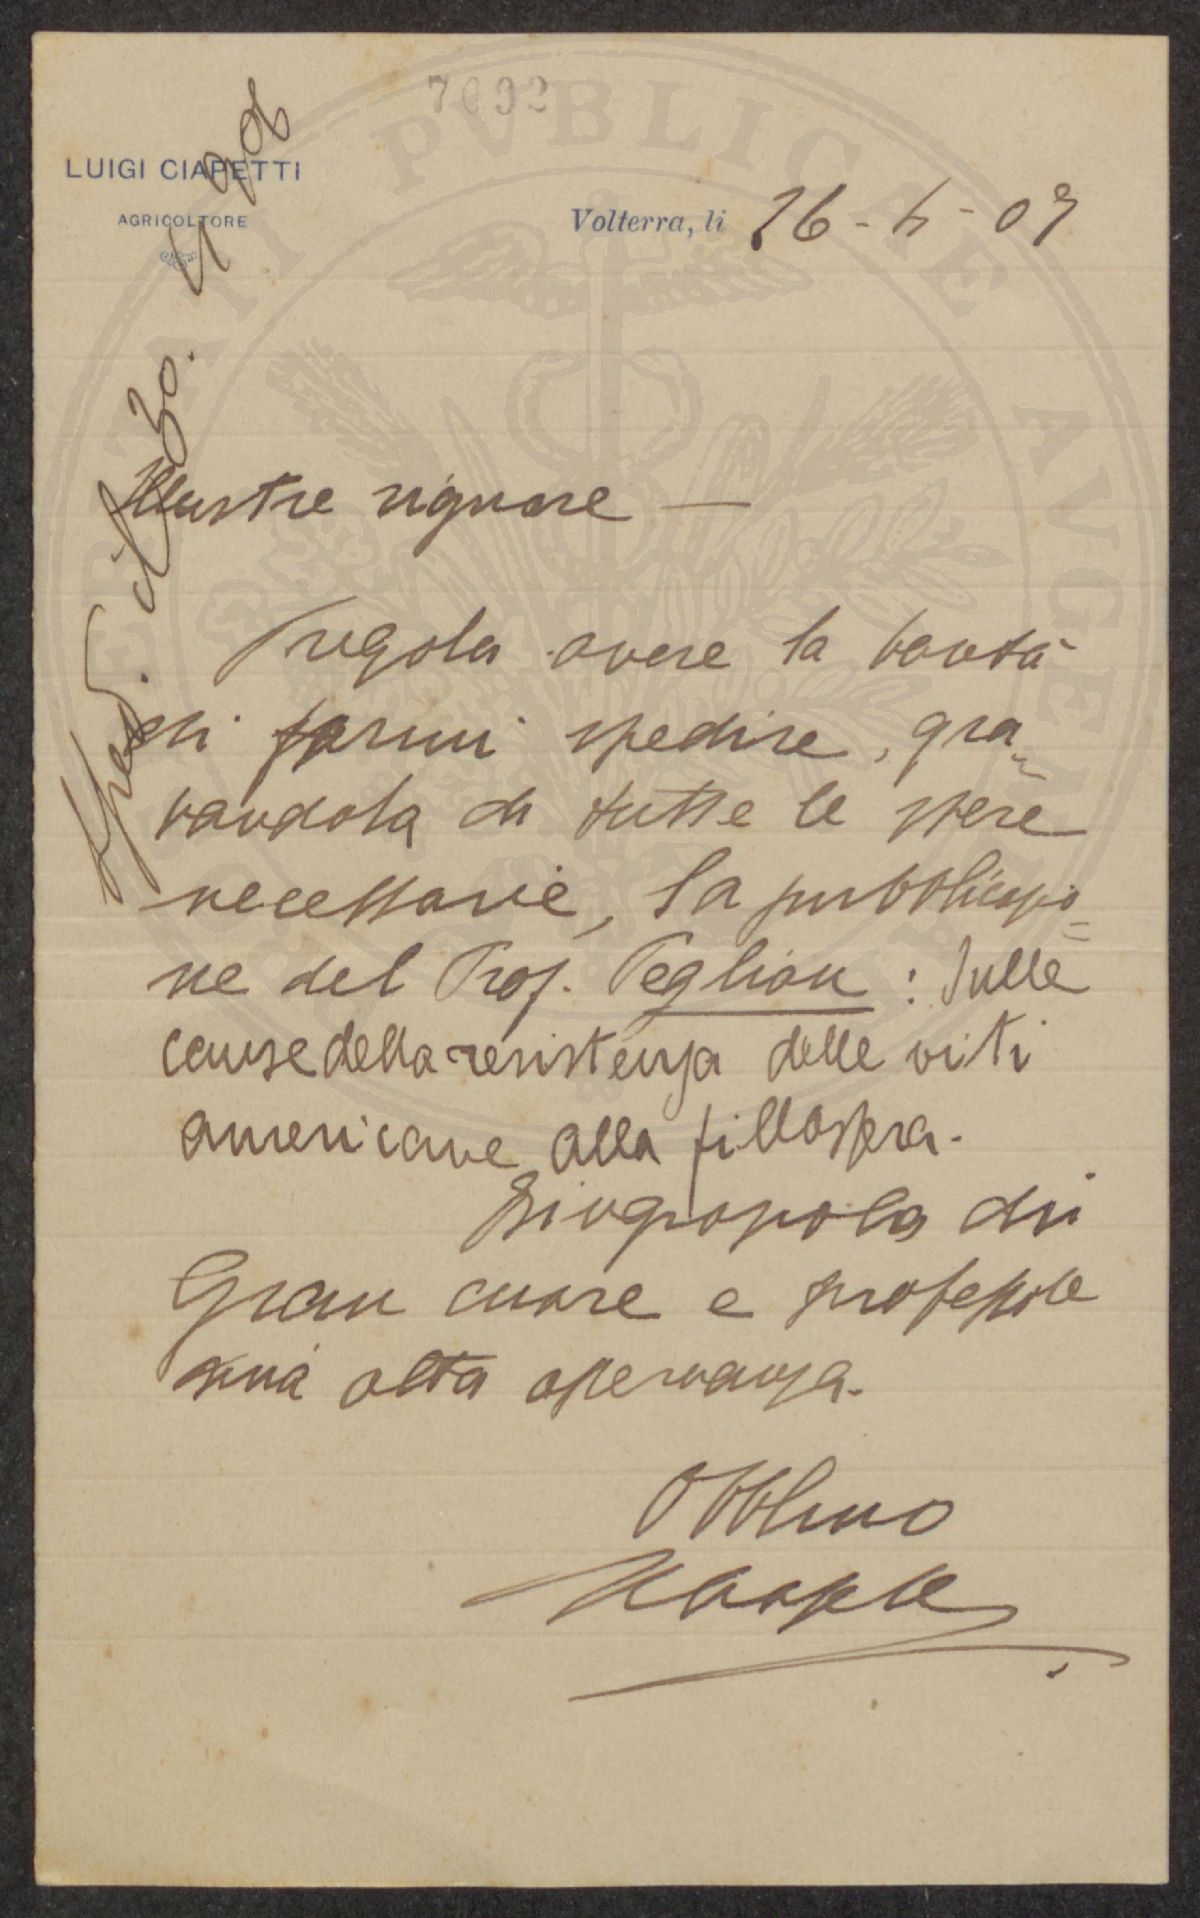 7092
LUIGI CIAPETTI
AGRICOLTORE
Volterra, li 26-4-09
Sped. il 30. 4 908
Illustre signore —
Pregola avere la bontà
di farmi spedire, gra-
vandola di tutte le spese
necessarie, la pubblicazio-
ne del Prof. Peglion: Sulle
cause della resistenza delle viti
americane alla fillossera.
Ringraziola di
Gran cuore e professole
mia alta osservanza.
Obblmo
PVBLICAE AVGENDAE